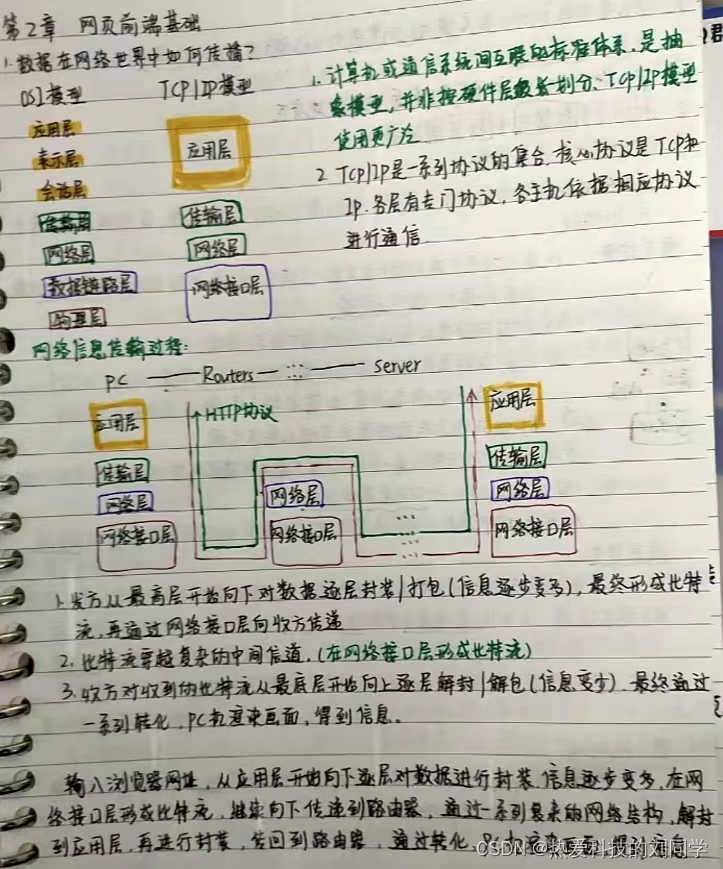 第2章 网页前端基础
1.数据在网络世界中如何传播?
OSI模型 TCP/IP模型
应用层
表示层
会话层
传输层
网络层
数据链路层
物理层
应用层
传输层
网络层
网络接口层
1. 计算机或通信系统间互联的标准体系,是抽
象模型,并非按硬件层级划分、TCP/IP模型
使用更广泛
2. TCP/IP是一系列协议的集合,核心协议是TCP和
IP.各层有专门协议,各主机依据相应协议
进行通信
网络信息传输过程:
PC Routers ... Server
HTTP协议
应用层
传输层
网络层
网络接口层
网络层
网络接口层
...
...
应用层
传输层
网络层
网络接口层
1.发方从最高层开始向下对数据逐层封装/打包(信息逐步变多),最终形成比特
流,再通过网络接口层向收方传递
2. 比特流穿越复杂的中间信道,(在网络接口层形成比特流)
3.收方对收到的比特流从最底层开始向上逐层解封/解包(信息变少),最终通过
一系列转化,PC机渲染画面,得到信息。
输入浏览器网址,从应用层开始向下逐层对数据进行封装,信息逐步变多,在网
络接口层形成比特流,继续向下传递到路由器,通过一系列复杂的网络结构,解封
到应用层,再进行封装,传回到路由器,通过转化,
CSDN @热爱科技的刘同学
群